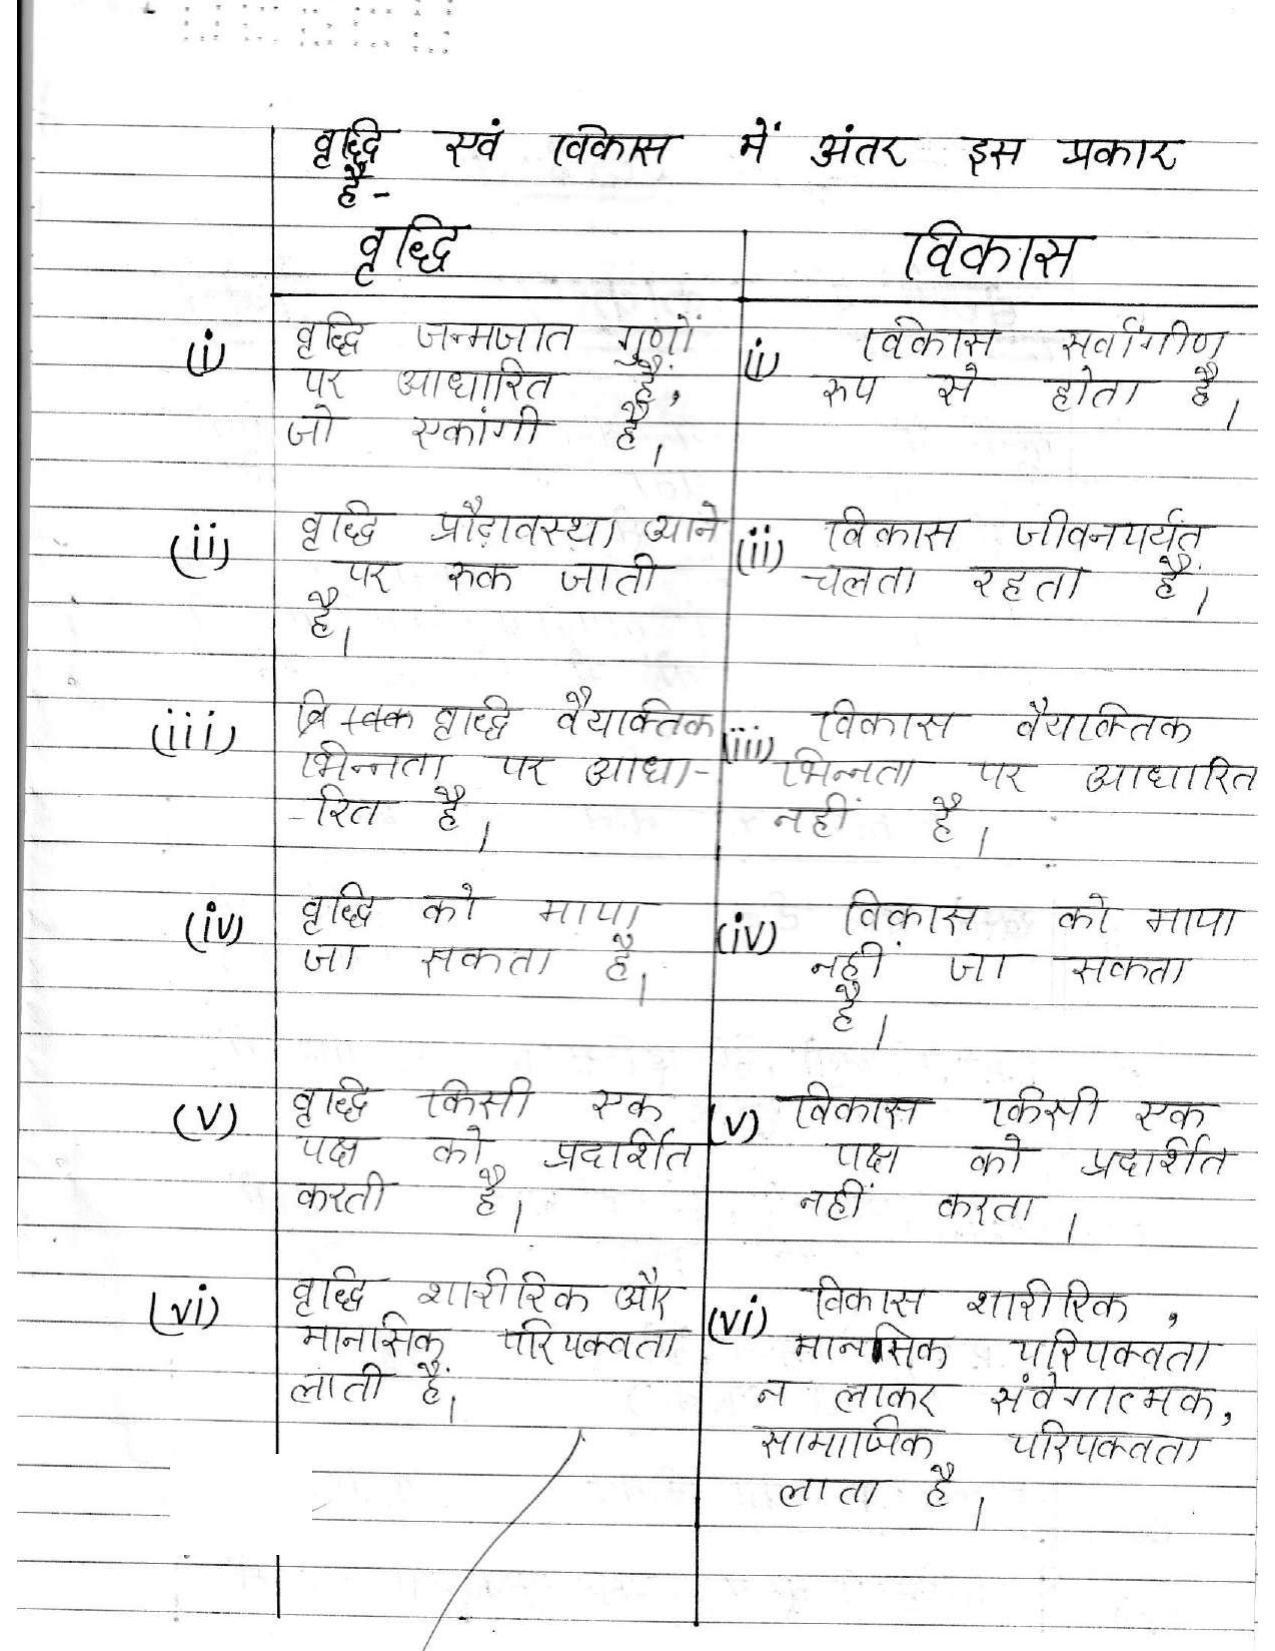 वृद्धि एवं विकास में अंतर इस प्रकार
है -
वृद्धि
विकास
(i) वृद्धि जन्मजात गुणों
पर आधारित है,
जो एकांगी है।
(i) विकास सर्वांगीण
रूप से होता है।
(ii) वृद्धि प्रौढ़ावस्था आने
पर रुक जाती
है।
(ii) विकास जीवनपर्यंत
चलता रहता है।
(iii) वृद्धि वैयक्तिक
भिन्नता पर आधा-
-रित है।
(iii) विकास वैयक्तिक
भिन्नता पर आधारित
नहीं है।
(iv) वृद्धि को मापा
जा सकता है।
(iv) विकास को मापा
नहीं जा सकता
है।
(v) वृद्धि किसी एक
पक्ष को प्रदर्शित
करती है।
(v) विकास किसी एक
पक्ष को प्रदर्शित
नहीं करता।
(vi) वृद्धि शारीरिक और
मानसिक परिपक्वता
लाती है।
(vi) विकास शारीरिक,
मानसिक परिपक्वता
न लाकर संवेगात्मक,
सामाजिक परिपक्वता
लाता है।